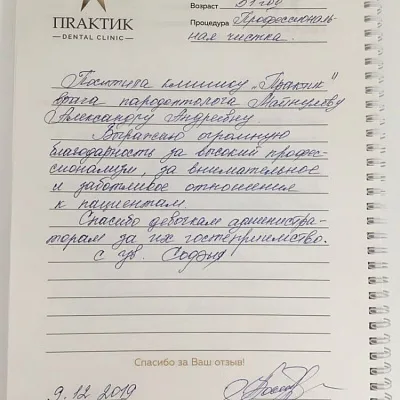 ПRАКТИК
DENTAL CLINIC
Возраст 51 год
Процедура Профессиональ-
ная чистка.
Посетила клинику „Практик"
врача пародонтолога
Александру Андреевну
Выражаю огромную
благодарность за высокий профес-
сионализм, за внимательное
и заботливое отношение
к пациентам.
Спасибо девочкам администра-
торам за их гостеприимство.
с ув.
Спасибо за Ваш отзыв!
9.12.2019